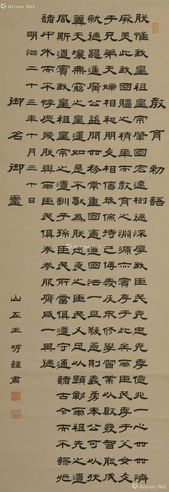 教育勅語
朕惟我皇祖皇宗肇國宏遠樹德深厚我臣民克忠克孝億兆一心世世濟
厥美此我國體之精華而教育之淵源亦實存乎此爾臣民孝于父母友
于兄弟夫婦相和朋友相信恭儉持己博愛及衆修學習業以啓發智能成
就德器進廣公益開世務常重國憲遵國法一旦緩急則義勇奉公以扶
翼天壤無窮之皇運如是者不獨為朕忠良臣民又足以顯彰爾祖先之遺
風矣斯道也實我皇祖皇宗之遺訓而子孫臣民之所當遵守通諸古今而不謬施
諸中外而不悖朕庶幾與爾臣民俱拳拳服膺咸一其德
明治二十三年十月三十日
御名御璽
山左王 謹書